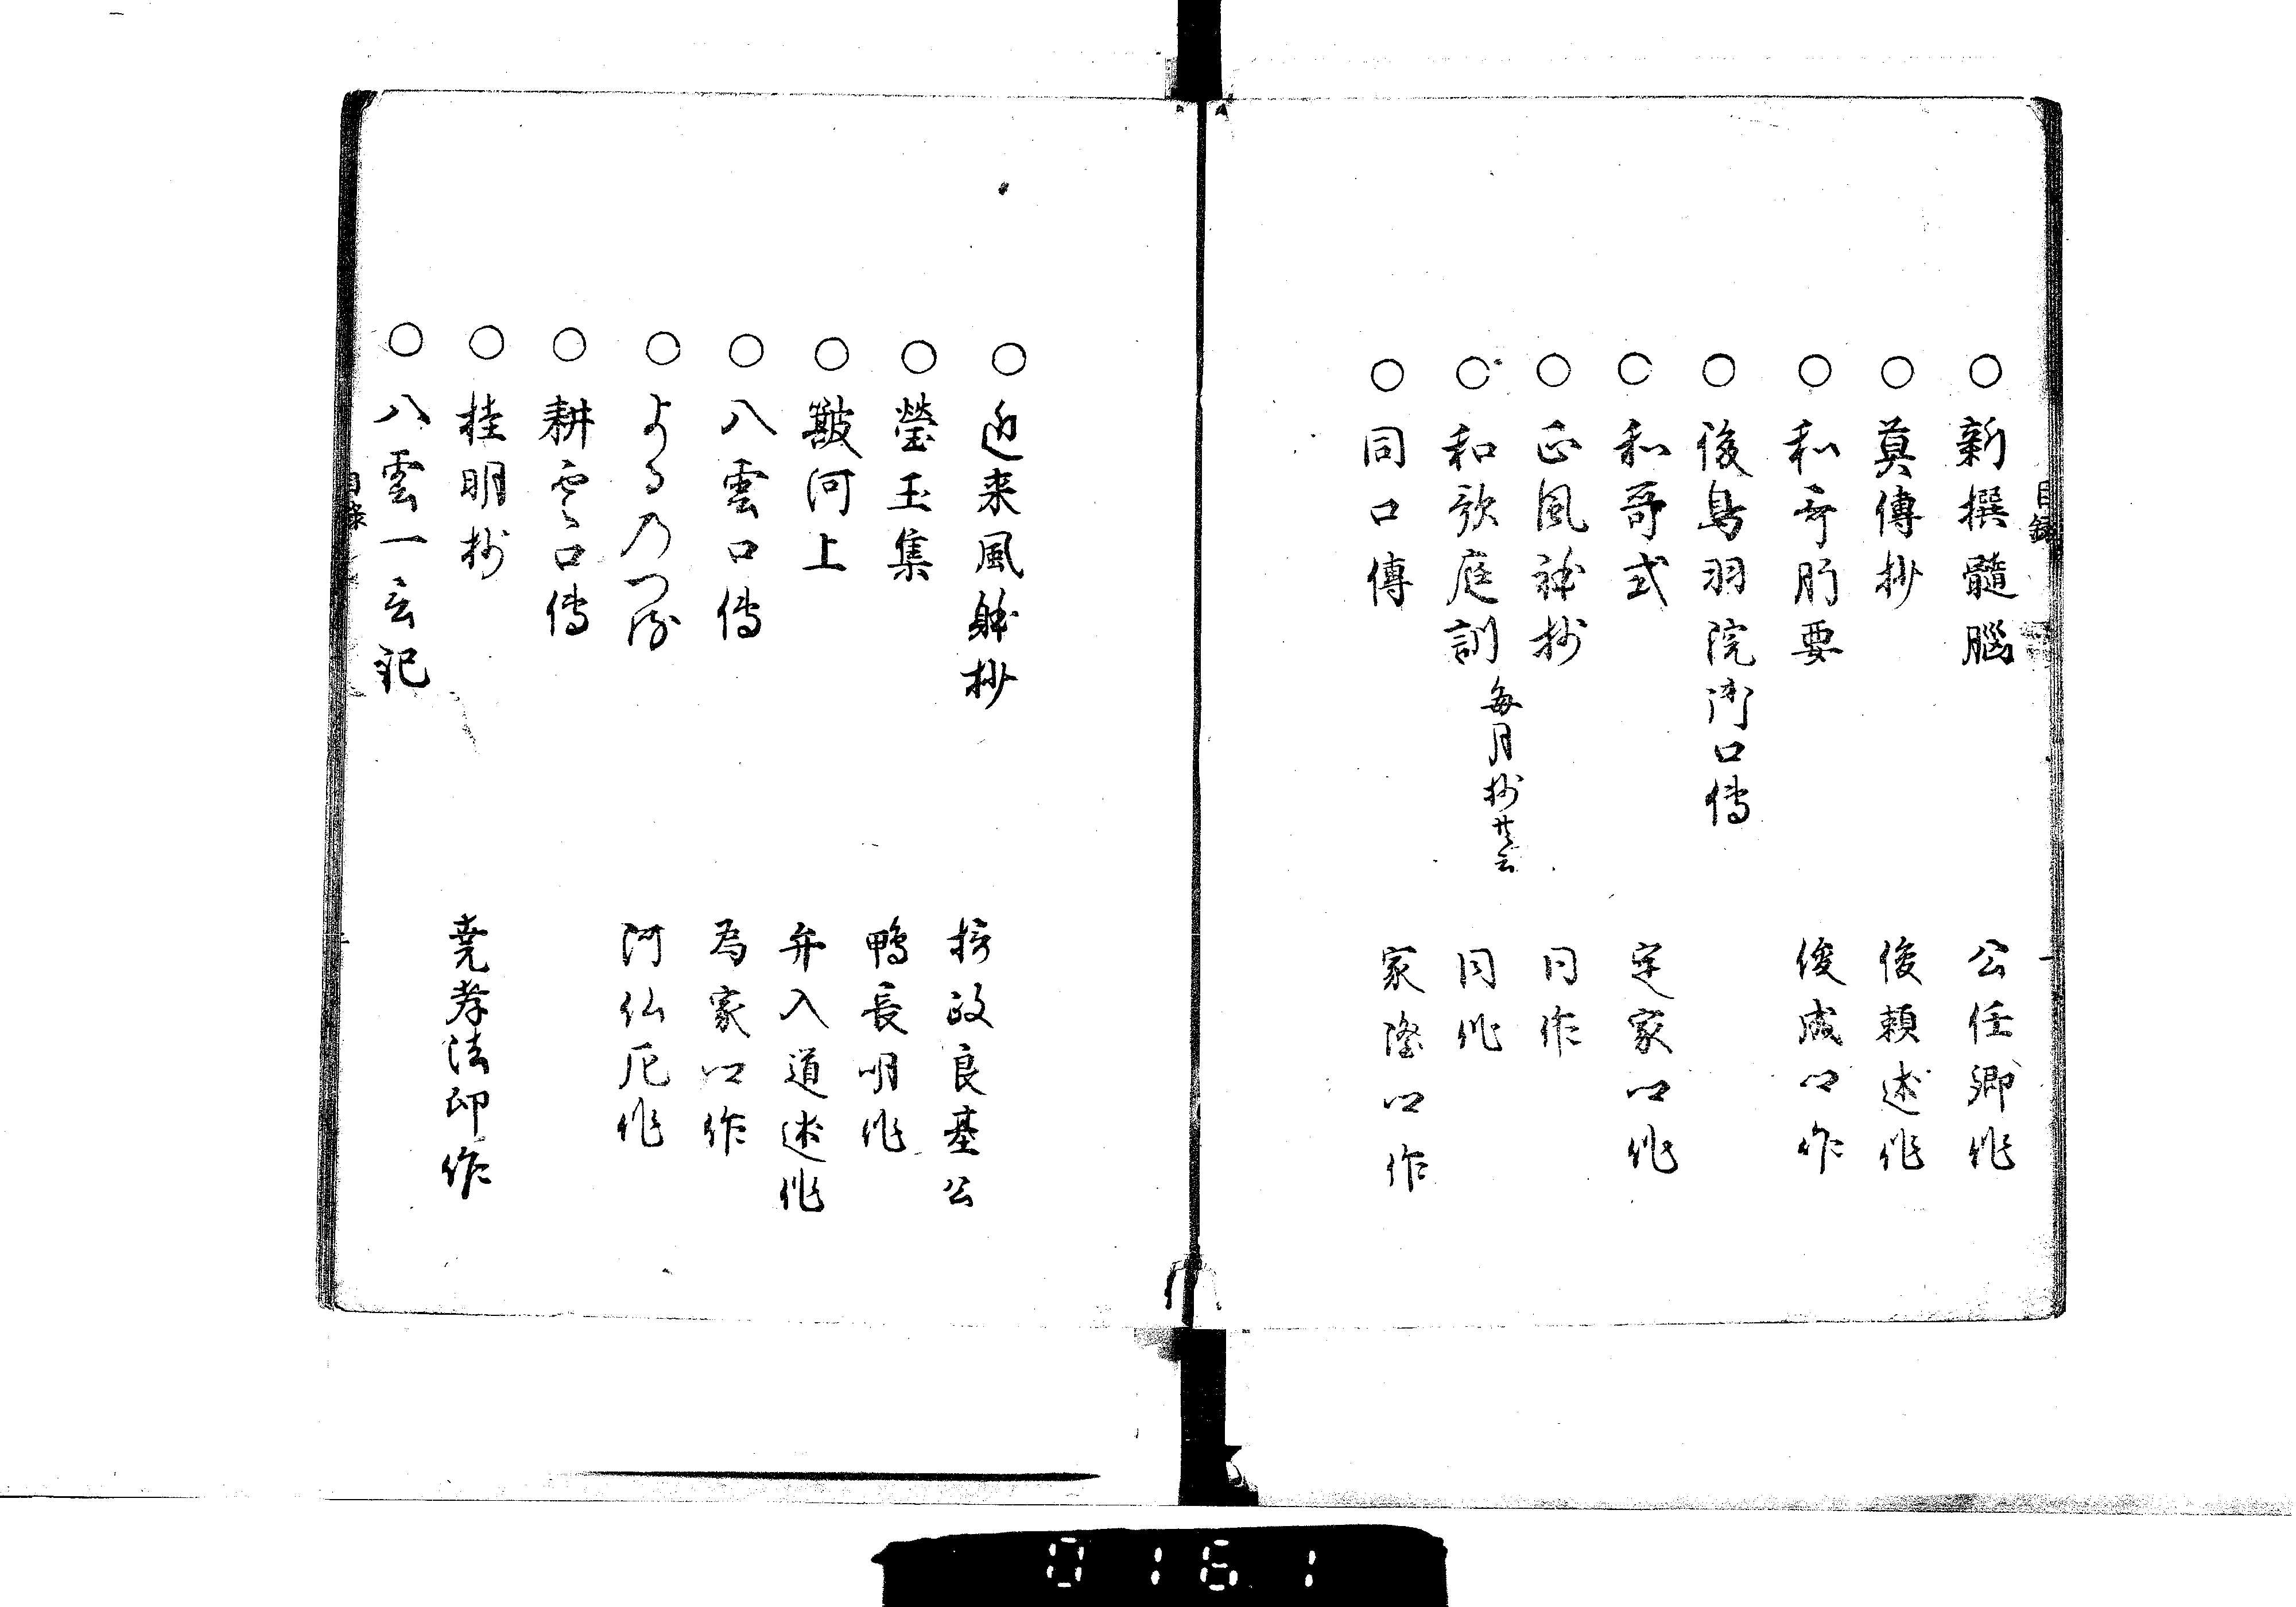 目録
一
○新撰髄脳　公任卿作
○莫傳抄　俊頼述作
○和哥肝要　俊成口作
○後鳥羽院御口傳
○和哥式　定家口作
○正風躰抄　同作
○和歌庭訓　毎月抄共云　同作
○同口傳　家隆口作
○近来風躰抄　摂政良基公
○瑩玉集　鴨長明作
○簸河上　弁入道述作
○八雲口傳　為家口作
○よるのつる　阿仏尼作
○耕雲口傳
○桂明抄　堯孝法印作
○八雲一言記
目録
0161